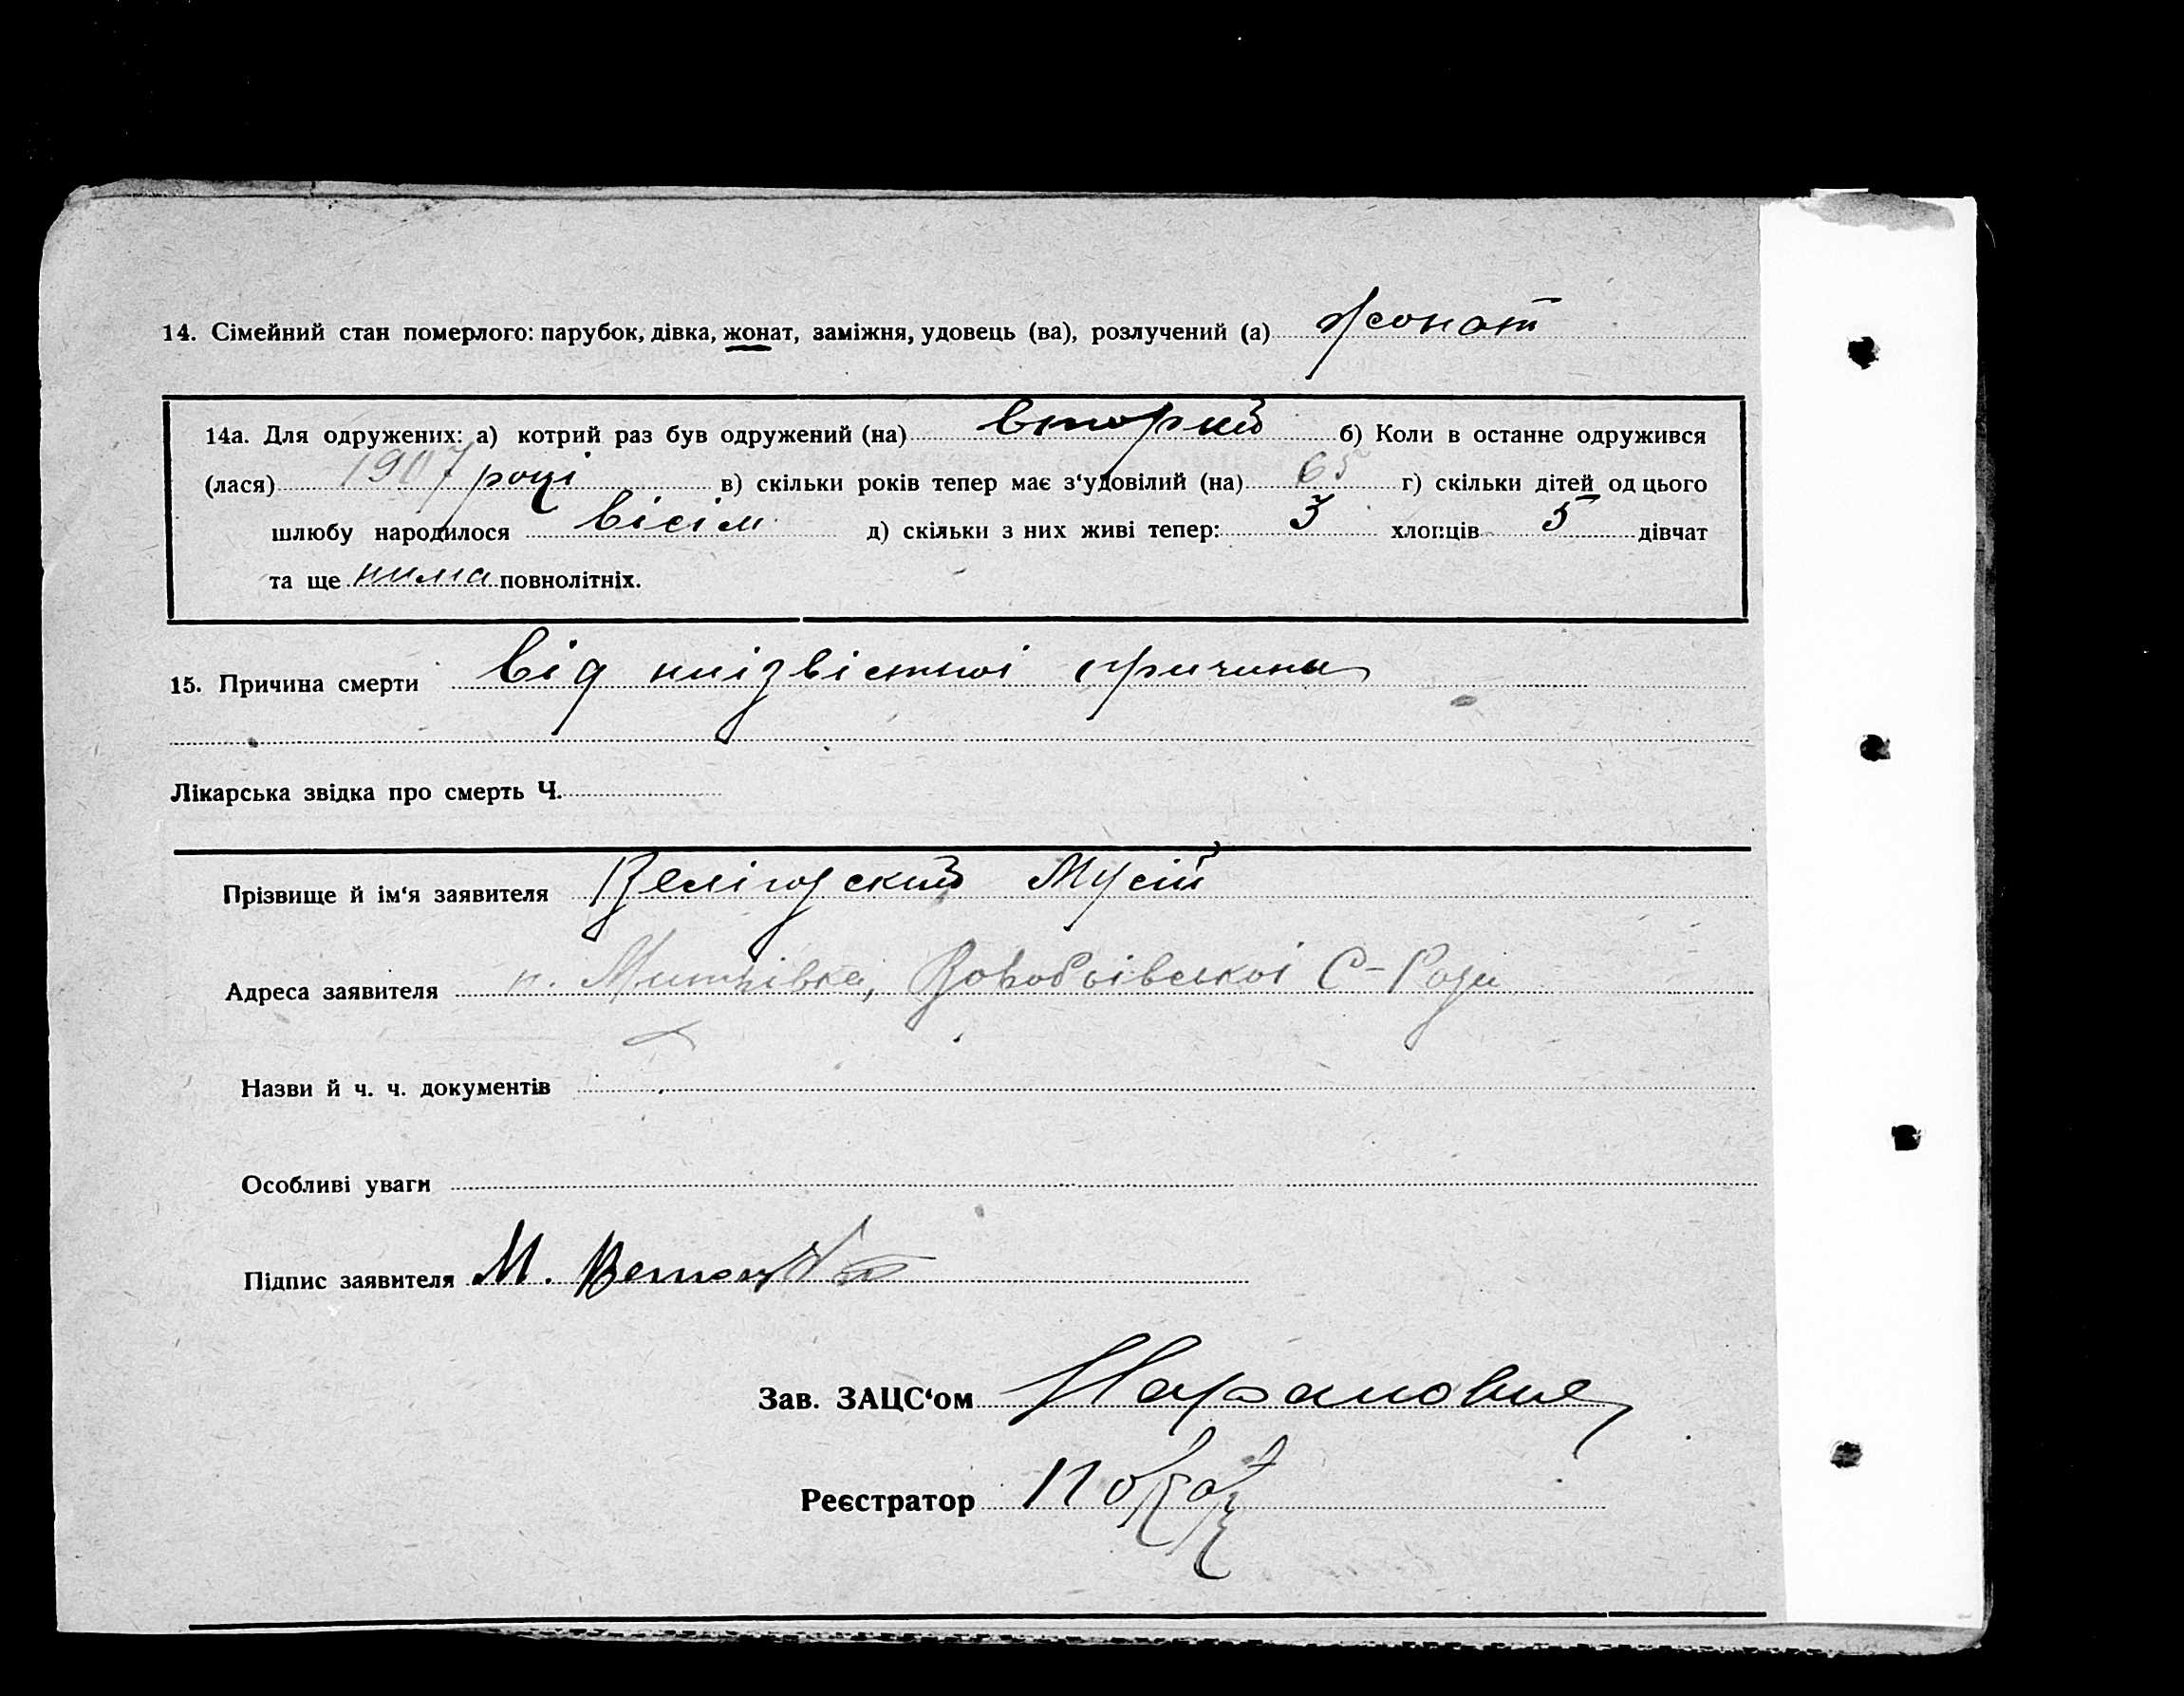 14. Сімейний стан померлого: парубок, дівка, жонат, заміжня, удовець (ва), розлучений (а) жонат
14а. Для одружених: а) котрий раз був одружений (на) вторий б) Коли в останне одружився
(лася) 1907 році в) скільки років тепер має з‘удовілий (на) 65 г) скільки дітей од цього
шлюбу народилося вісім д) скільки з них живі тепер: 3 хлопців 5 дівчат
та ще нима повнолітніх.
15. Причина смерти від низвістної причини
Лікарська звідка про смерть Ч.
Прізвище й ім‘я заявителя Велігорский Мусій
Адреса заявителя Воробіівскоі С-Ради
Назви й ч. ч. документів
Особливі уваги
Підпис заявителя М.
Зав. ЗАЦС‘ом
Реєстратор